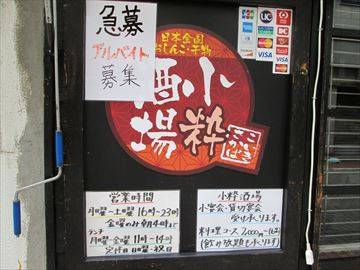 急募
アルバイト
募集
日本全国
おしんこ・干物
小粋
酒場
JCB
UC
VISA
VISA
VISA
営業時間
月曜〜土曜 16時〜23時
金曜のみ朝4時まで
ランチ
月曜〜金曜 11時〜14時
定休日 日曜・祝日
小粋酒場
小宴会・貸切宴会
受け承ります。
料理コース 2,000円〜
(飲み放題も承ります)